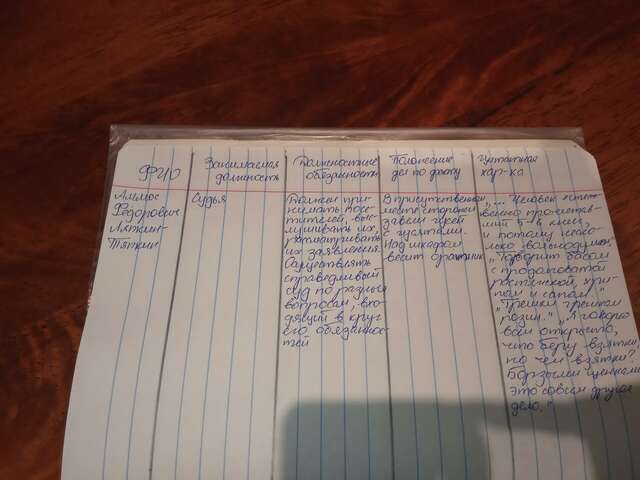 ФИО
Занимаемая
должность
Должностные
обязанности
Положение
дел по факту
Цитатная
хар-ка
Аммос
Федорович
Ляпкин-
Тяпкин
Судья
Должен при-
нимать посе-
тителей, выс-
лушивать их,
рассматривать
их заявления.
Осуществлять
справедливый
суд по разным
вопросам, вхо-
дящий в круг
его обязаннос-
тей
В присутственном
месте сторожа
завели гусей
с гусятами.
Над шкафом
весит арапник
„... Человек
прочитав-
ший 5-6 книг,
и потому неско-
лько вольнодумен"
„Говорит басом
с продолговатой
растяжкой, хри-
пом и сапом."
„Грешки грешкам
розни." „Я говорю
всем открыто,
что беру взятки,
но чем взятки?
Борзыми щенками.
это совсем другое
дело."